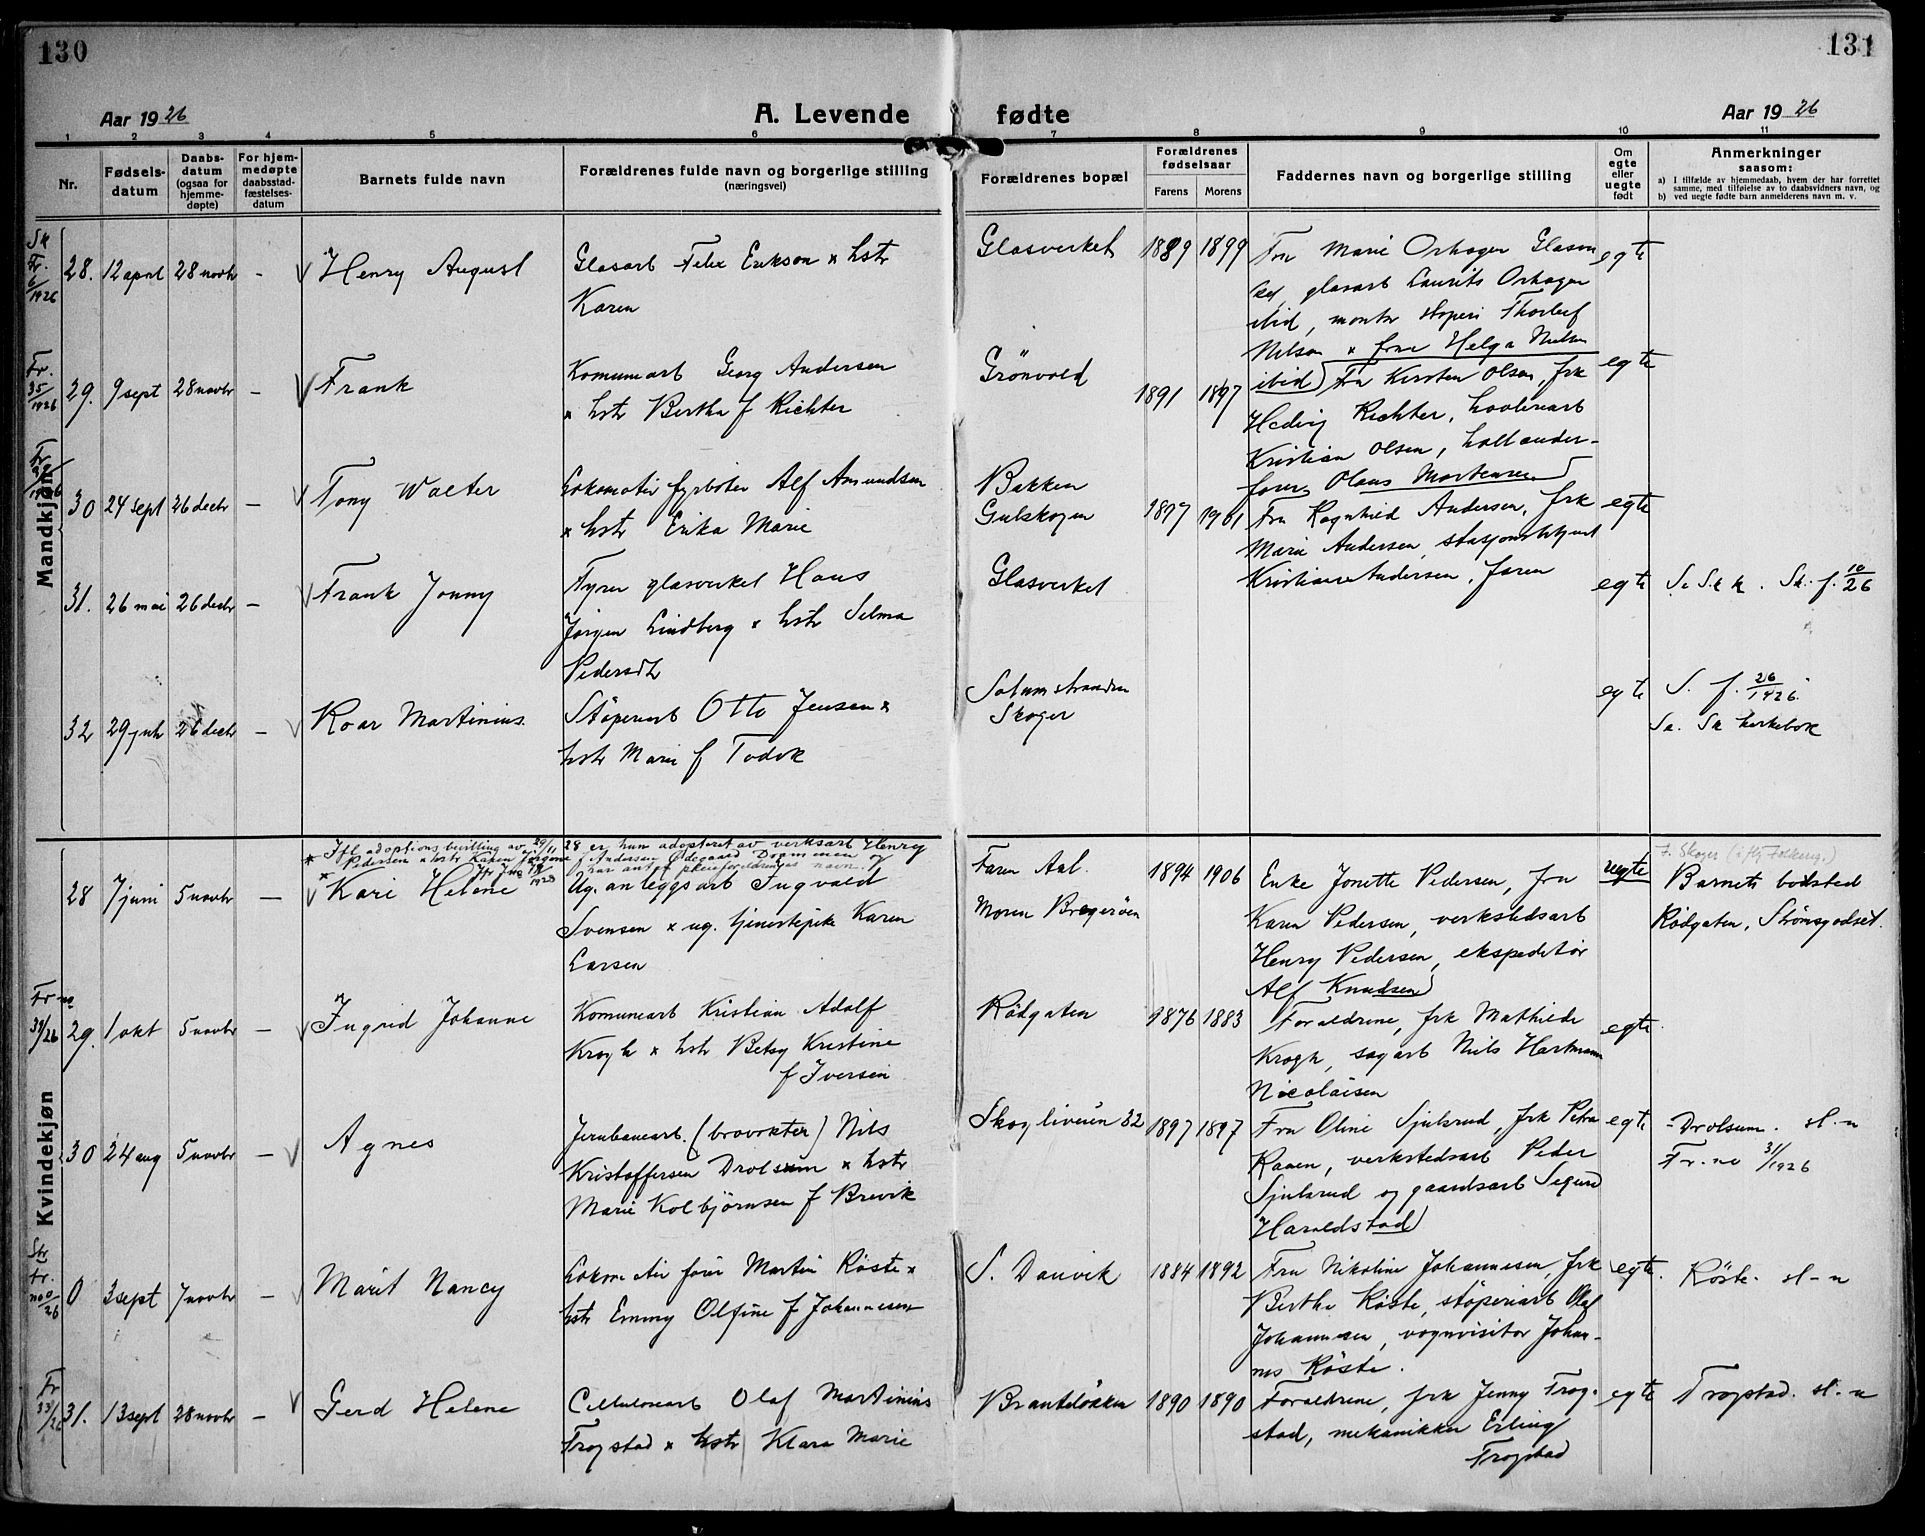 130
131
Aar 1926
A. Levende fødte
Aar 1926
1 2 3 4 5 6 7 8 9 10 11
Nr.
Fødsels-
datum
Daabs-
datum
(ogsaa for
hjemme-
døpte)
For hjem-
medøpte
daabsstad-
fæstelses-
datum
Barnets fulde navn
Forældrenes fulde navn og borgerlige stilling
(næringsvei)
Forældrenes bopæl
Forældrenes
fødselsaar
Farens Morens
Faddernes navn og borgerlige stilling
Om
egte
eller
uegte
født
Anmerkninger
saasom:
a) I tilfælde av hjemmedaab, hvem der har forrettet
samme, med tilføielse av to daabsvidners navn, og
b) ved uegte fødte barn anmelderens navn m. v.
Mandkjøn
Sk
Fr.
6/1926
28. 12 april 28 novbr - Henry August
Glasarb Felix Erikson x hstr
Karen
Glasverket
1889 1899
Fru Marie Orhagen Glasver
ket, glasarb Laurits Orhagen
ibid, montør Thorleif
Nilsen x frue Helga Nilsen
ibid
egte
Fr.
35/1926
29. 9 sept 28 novbr - Frank
Komunearb Georg Andersen
x hstr Bertha f Richter
Grönvold
1891 1897
Fru Kirsten Olsen, frk
Hedvig Richter,
Kristian Olsen,
Olaus Mortensen
egte
Fr
30 24 sept 26 decbr - Tony Walter
Lokomotiv fyrböter Alf Amundsen
x hstr Erika Marie
Bakken
Gulskogen
1897 1901
Fru Ragnhild Andersen, frk
Marie Andersen, stasjonsbetjent
Kristian Andersen, faren
egte
31. 26 mai 26 decbr - Frank Jonny
Fyrer glasverket Hans
Jörgen Lindberg x hstr Selma
Pedersdtr
Glasverket
egte
Se Sk k. Sk. f. 10/26
32 29 26 decbr - Roar Martinius
Stöperiarb Otto Jensen x
hstr Marie f Todok
Solumstranden
Skoger
egte
S. f. 26/1926.
Se. Sk kirkebok
Kvindekjøn
* Ifl. adoptionsbevilling av 29/11 28 er hun adopteret av verksarb Henry
Pedersen x hstr Karen Jörgine f Andersen Ødegaard Drammen og
har antat pleieforeldrenes navn.
28 7 juni 5 novbr - * Kari Helene
Ug. anleggsarb Ingvald
Svensen x ug. tjenestepike Karen
Larsen
Faren Aal.
Moren Bragerøen
1894 1906
Enke Jonette Pedersen, fru
Karen Pedersen, verkstedsarb
Henry Pedersen, ekspeditör
Alf Knudsen
uegte
Barnets bosted
Rödgaten, Strömsgodset.
Fr no
29. 1 okt 5 novbr - Ingrid Johanne
Komunearb Kristian Adolf
Krogh x hstr Betsy Kristine
f Iversen
Rödgaten
1876 1883
Foraldrene, frk Mathilde
Krogh, sagarb Nils Hartmann
Nicolaisen
egte.
30 24 aug 5 novbr - Agnes
Jernbanearb. (brovokter) Nils
Kristoffersen Drolsum x hstr
Marie Kolbjørnsen f Brevik
Skogliveien 32
1897 1897
Fru Oline Sjulsrud, frk Petra
Raaen, verkstedsarb Peder
Sjulsrud og gaardsarb Sigurd
Haraldstad
egte
-Drolsum. sl-n
Fr. no 31/1926
Str
fr.
no 0/26
0 3 sept 7 novbr - Marit Nancy
Lokomotiv förer Martin Röste x
hstr Emmy Olfine f Johannesen
S. Danvik
1884 1892
Fru Nikoline Johannesen, frk
Berthe Röste, stöperiarb Olaf
Johannesen, vognvisitör Johan-
nes Röste.
egte.
Röste. sl-n
Fr
33/26
31. 13 sept 28 novbr - Gerd Helene
Cellulosearb Olaf Martinius
Frogstad x hstr Klara Marie
Brantelökken
1890 1890
Foraldrene, frk Jenny Frog-
stad, mekanikker Erling
Frogstad
egte
Frogstad. sl-n